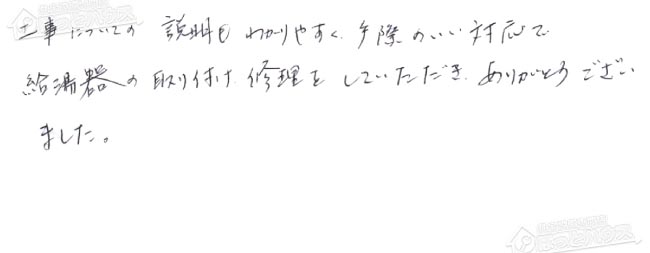 工事についての説明もわかりやすく、手際のいい対応で
給湯器の取り付け、修理をしていただき、ありがとうござい
ました。